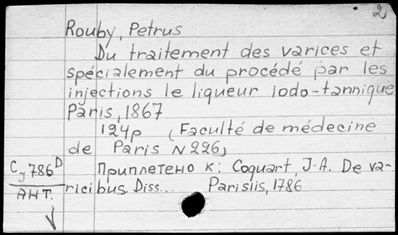 2
Rouby, Petrus
Du traitement des varices et
spécialement du procédé par les
injections le liqueur iodo-tannique
Paris, 1867
124p (Faculté de médecine
de Paris N226)
Cȷ 786 D Приплетено к: Coquart, J.A. De va-
АНТ. ricibus. Diss... Parisiis, 1786